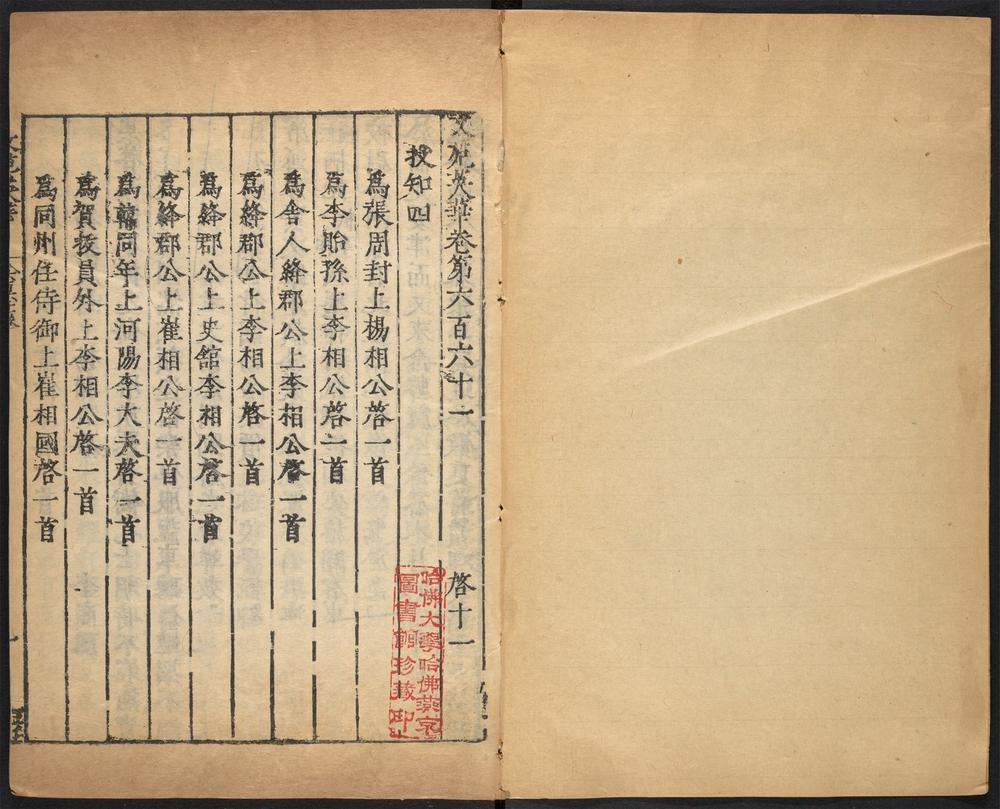 文苑英華卷第六百六十一 啓十一
投知四
爲張周封上楊相公啓一首
爲李貽孫上李相公啓一首
爲舍人絳郡公上李相公啓一首
爲絳郡公上李相公啓一首
爲絳郡公上史館李相公啓一首
爲絳郡公上崔相公啓一首
爲韓同年上河陽李大夫啓一首
爲賀拔員外上李相公啓一首
爲同州任侍御上崔相國啓一首
哈佛大學哈佛燕京
圖書館珍藏印